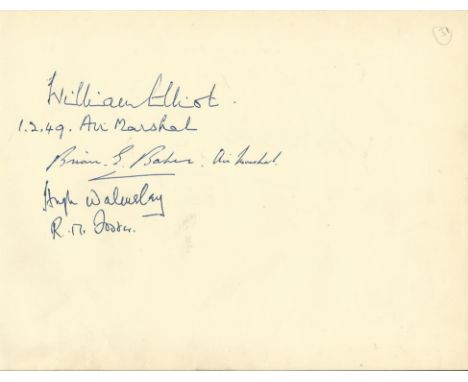 31
William Elliot.
1.2.49. Air Marshal
Brian E. Baker. Air Marshal.
Hugh Walmsley
R. M. Foster.